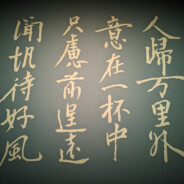 人歸万里外
意在一杯中
只慮前程遠
聞帆待好風